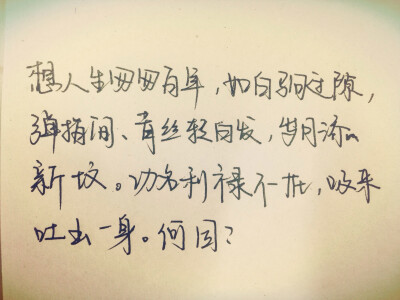 想人生匆匆百年，如白驹过隙，
弹指间、青丝转白发，岁月添
新坟。功名利禄不，吸来
吐出一身。何因？